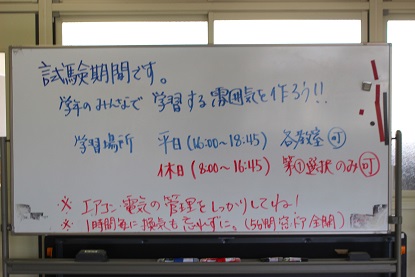 試験期間です。
学年のみんなで 学習する雰囲気を作ろう!!
学習場所 平日(16:00〜18:45) 各教室 可
休日(8:00〜16:45) 第①選択のみ 可
※ エアコン・電気の管理をしっかりしてね!
※ 1時間毎に換気も忘れずに。(5分間窓、ドア全開)